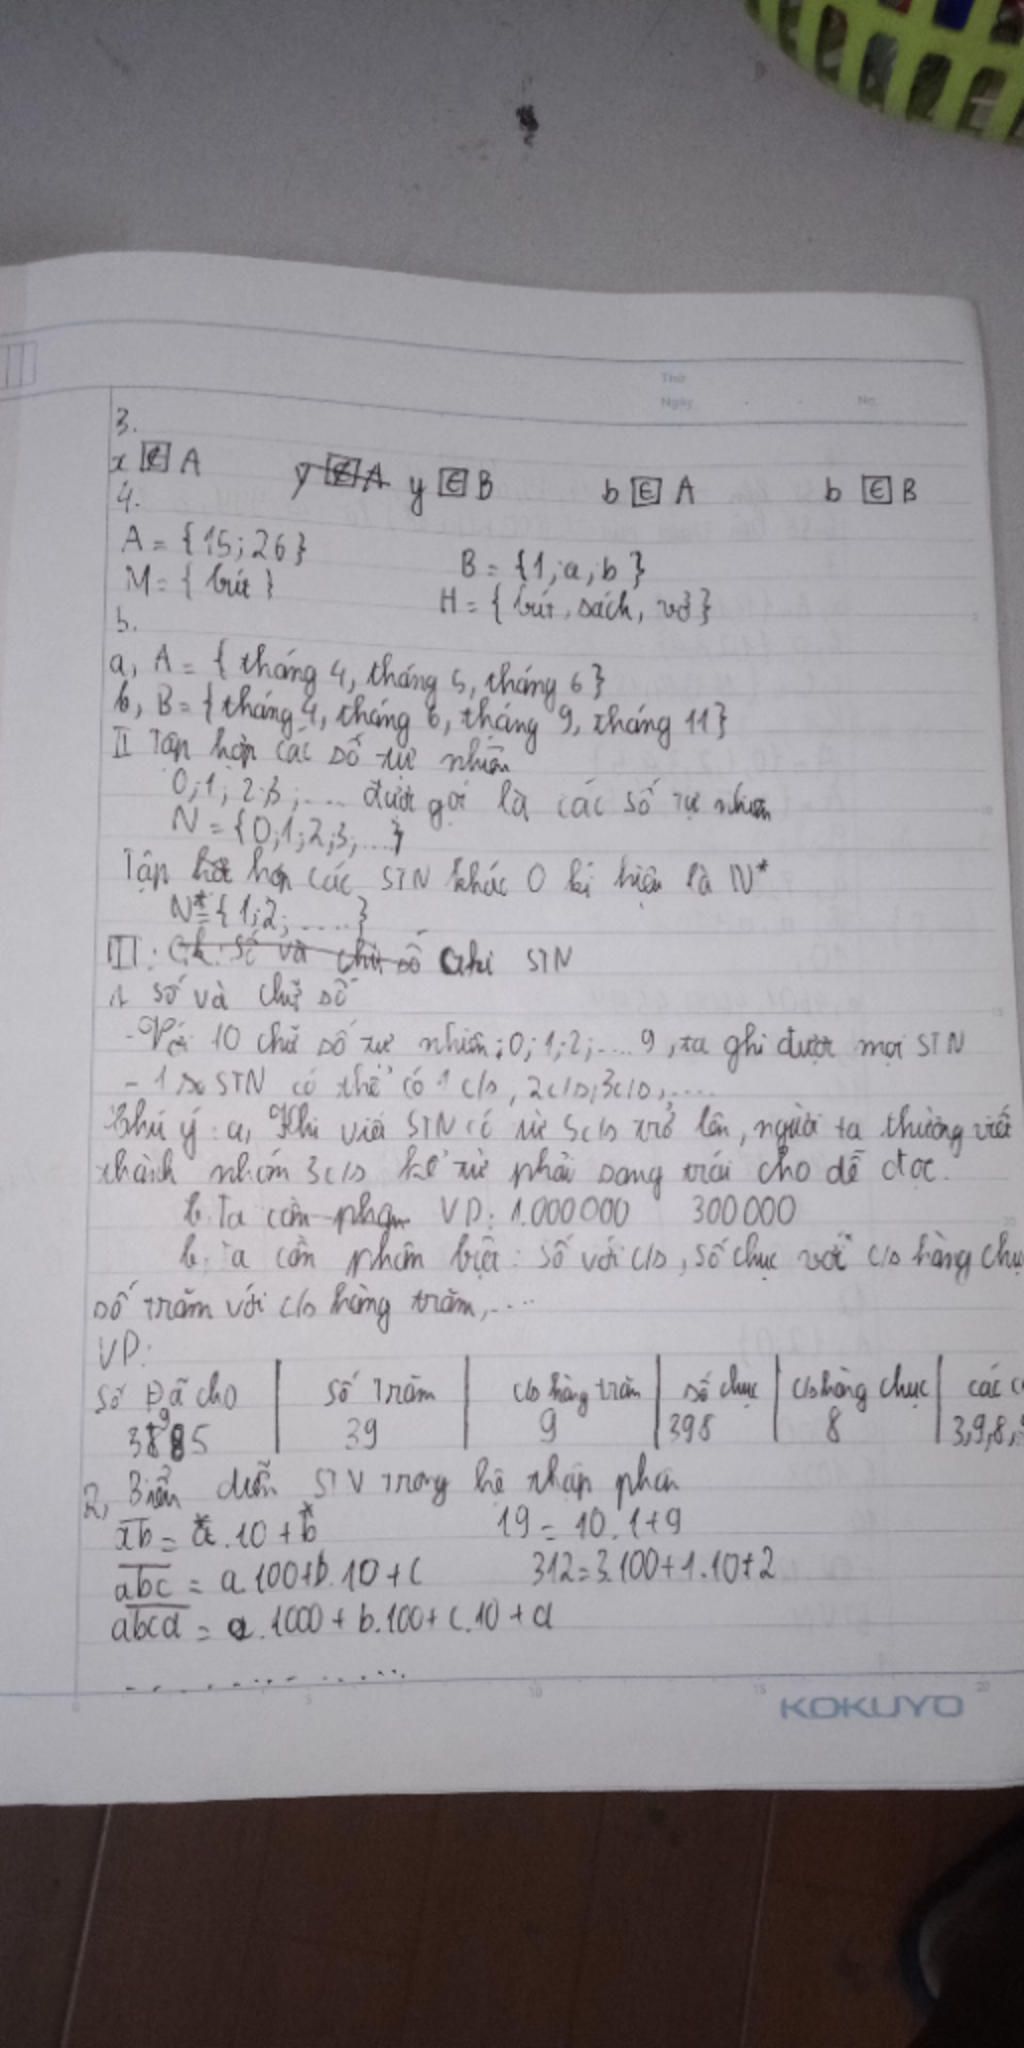 Thứ
Ngày No.
3.
x ∉ A y ∈ B b ∈ A b ∈ B
4.
A = {15; 26}
B = {1, a, b}
M = { bút }
H = { bút, sách, vở}
5.
a, A = { tháng 4, tháng 5, tháng 6}
b, B = {tháng 4, tháng 6, tháng 9, tháng 11}
II Tập hợp các số tự nhiên
0; 1; 2; 3; .... được gọi là các số tự nhiên
N = {0; 1; 2; 3; ....}
Tập hợp các STN khác 0 kí hiệu là N*
N* = {1; 2; .....}
III: Ghi STN
1. Số và chữ số
- Với 10 chữ số tự nhiên; 0; 1; 2; .... 9, ta ghi được mọi STN
- 1 STN có thể có 1 c/s, 2c/s, 3c/s, ....
Chú ý: a, Khi viết STN có từ 5c/s trở lên, người ta thường viết
thành nhóm 3c/s kể từ phải sang trái cho dễ đọc.
VD: 1.000000 300000
b. Ta cần phân biệt: Số với c/s, số chục với c/s hàng
số trăm với c/s hàng trăm, ....
VD:
Số Đã cho | Số Trăm | c/s hàng trăm | số chục | c/s hàng chục | các
3985 | 39 | 9 | 398 | 8 | 3,9,8,
2, Biểu diễn STN trong hệ thập phân
ab = a.10 + b 19 = 10.1+9
abc = a.100+b.10+c 312=3.100+1.10+2
abcd = a.1000 + b.100 + c.10 + d
............
KOKUYO